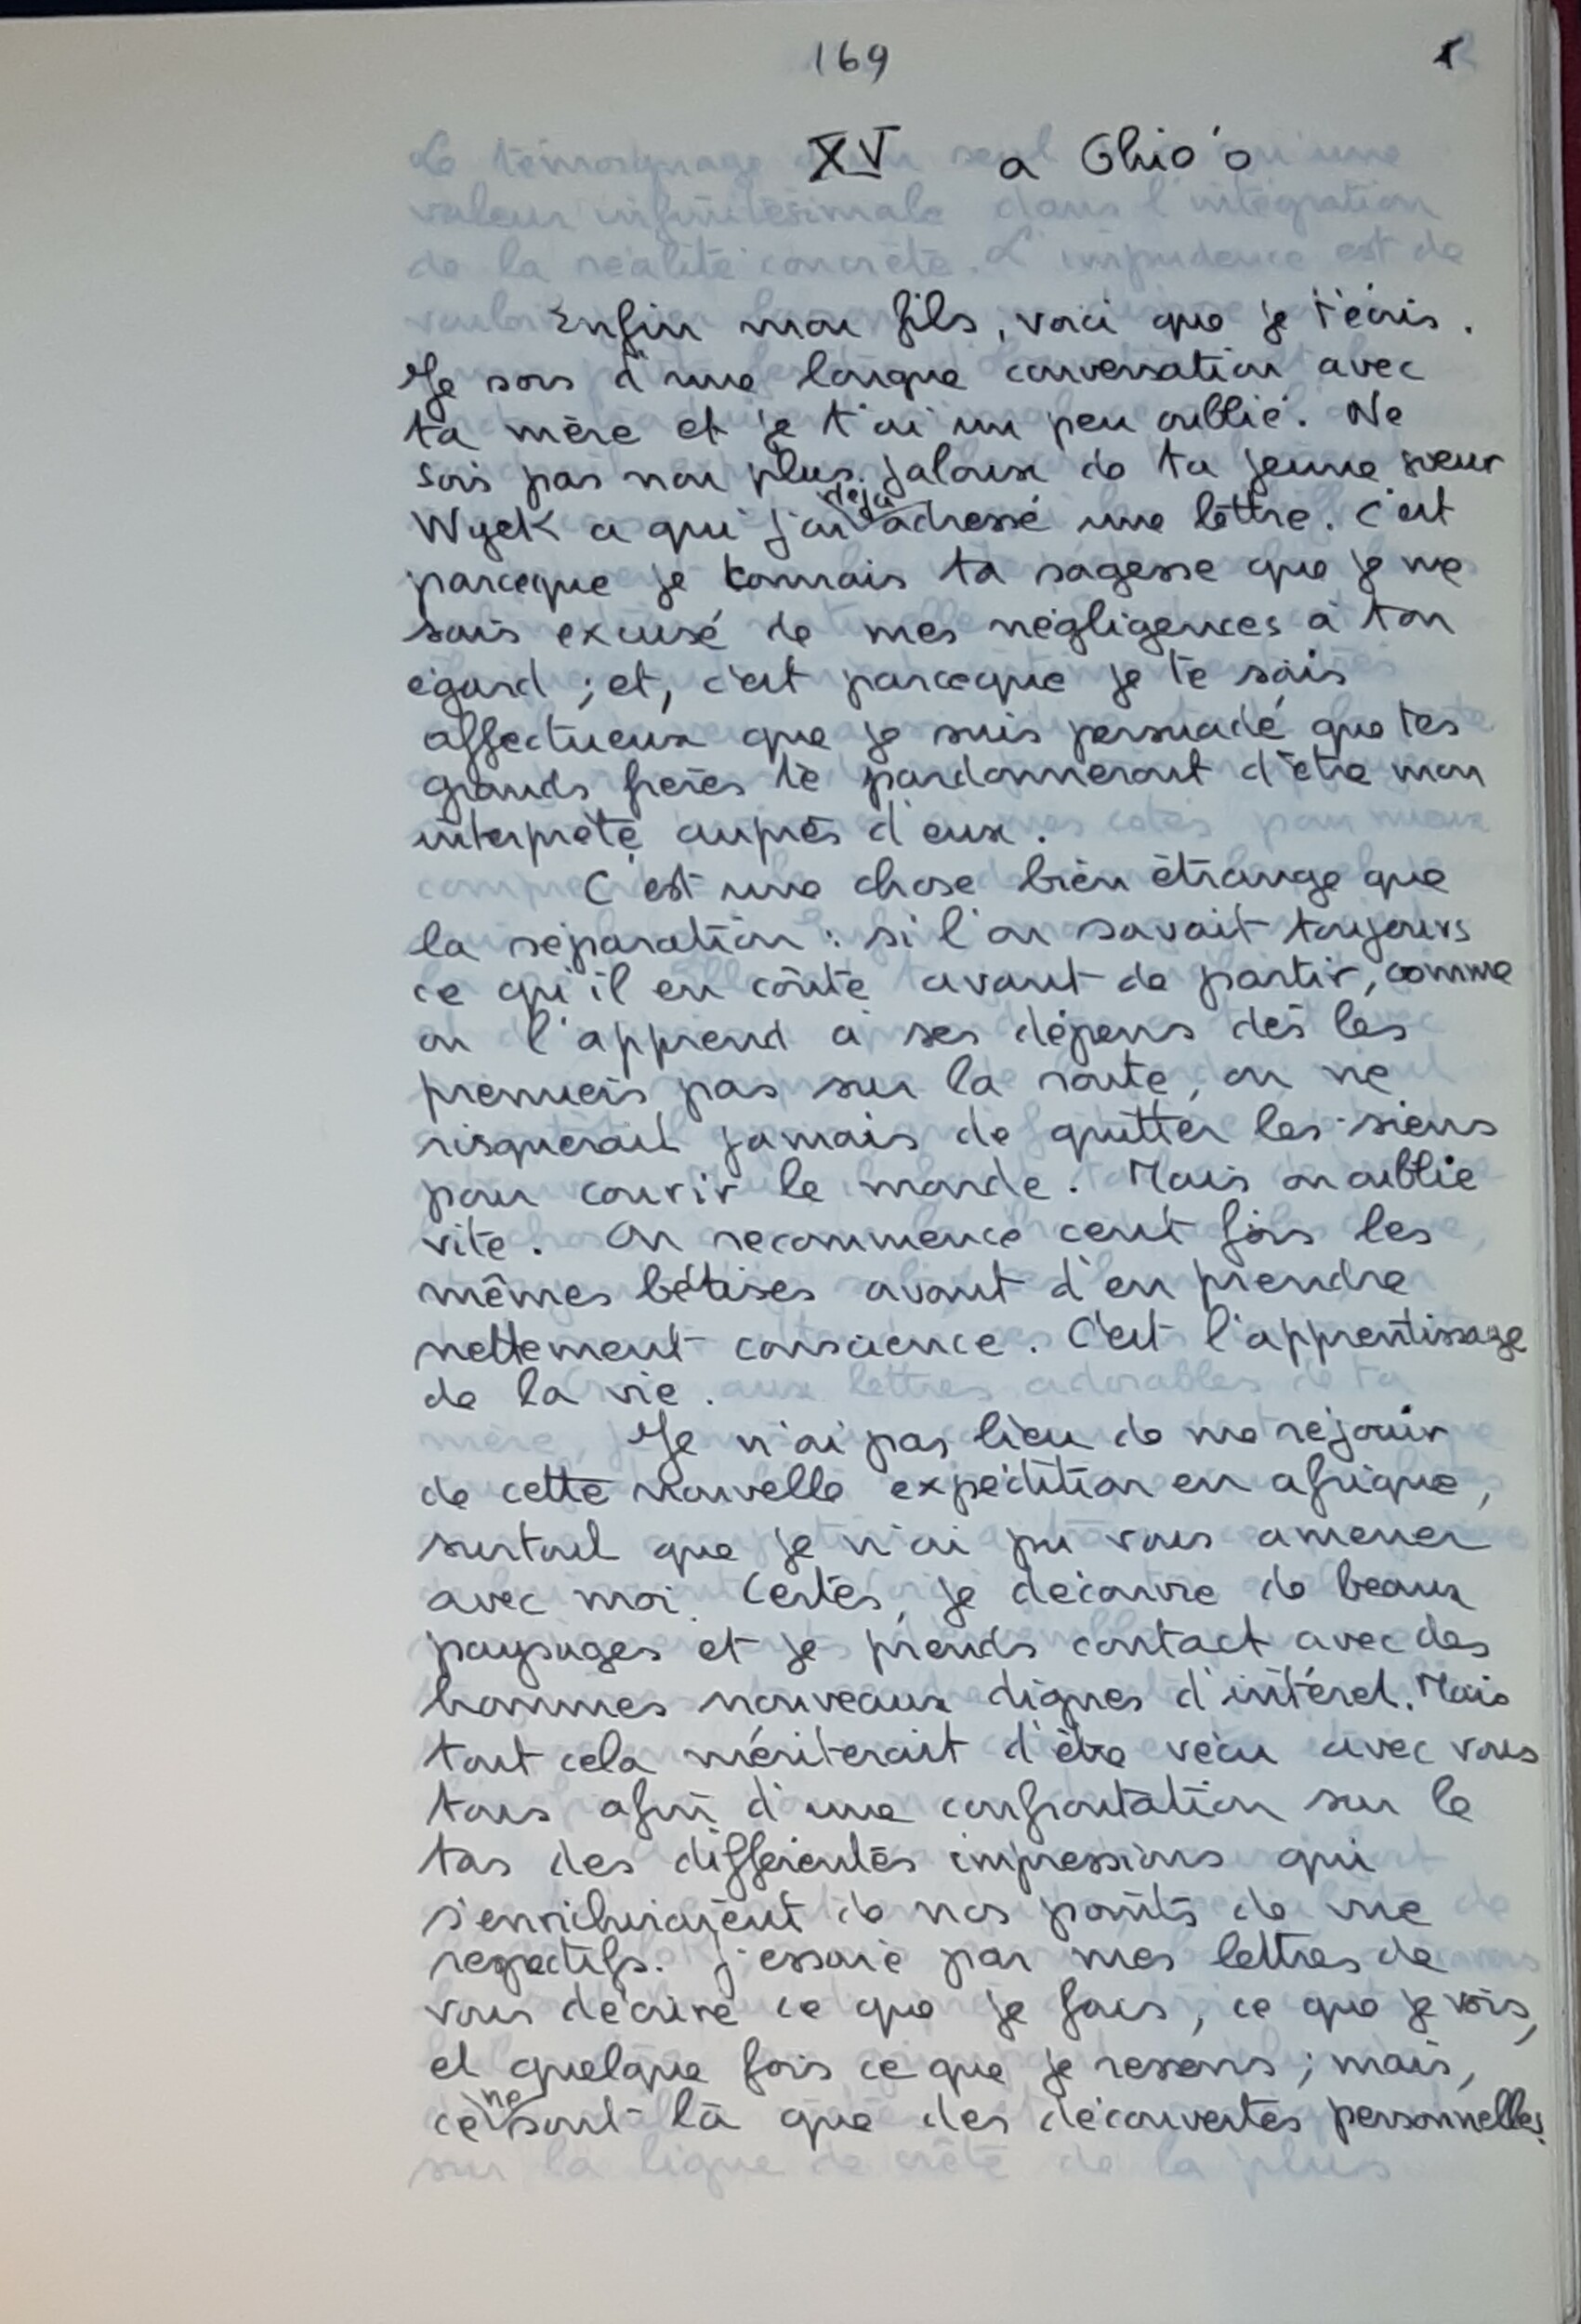 169
XV a Ghio'o
Enfin mon fils, voici que je t'écris.
Je sors d'une longue conversation avec
ta mère et je t'ai un peu oublié. Ne
sois pas non plus jaloux de ta jeune sœur
Wyck a qui j'ai déjà adressé une lettre. C'est
parceque je connais ta sagesse que je me
sais excusé de mes négligences à ton
égard ; et, c'est parceque je te sais
affectueux que je suis persuadé que tes
grands frères te pardonneront d'être mon
interprète auprès d'eux.
C'est une chose bien étrange que
la séparation : si l'on savait toujours
ce qu'il en coûte avant de partir, comme
on l'apprend à ses dépens dès les
premiers pas sur la route, on ne
risquerait jamais de quitter les siens
pour courir le monde. Mais on oublie
vite. On recommence cent fois les
mêmes bêtises avant d'en prendre
nettement conscience. C'est l'apprentissage
de la vie.
Je n'ai pas lieu de me réjouir
de cette nouvelle expédition en afrique,
surtout que je n'ai pu vous amener
avec moi. Certes, je découvre de beaux
paysages et je prends contact avec des
hommes nouveaux dignes d'intéret. Mais
tout cela mériterait d'être vécu avec vous
tous afin d'une confrontation sur le
tas des différentes impressions qui
s'enrichiraient de nos points de vue
respectifs. J'essaie par mes lettres de
vous décrire ce que je fais, ce que je vois,
et quelque fois ce que je ressens ; mais,
ce ne sont là que des découvertes personnelles.